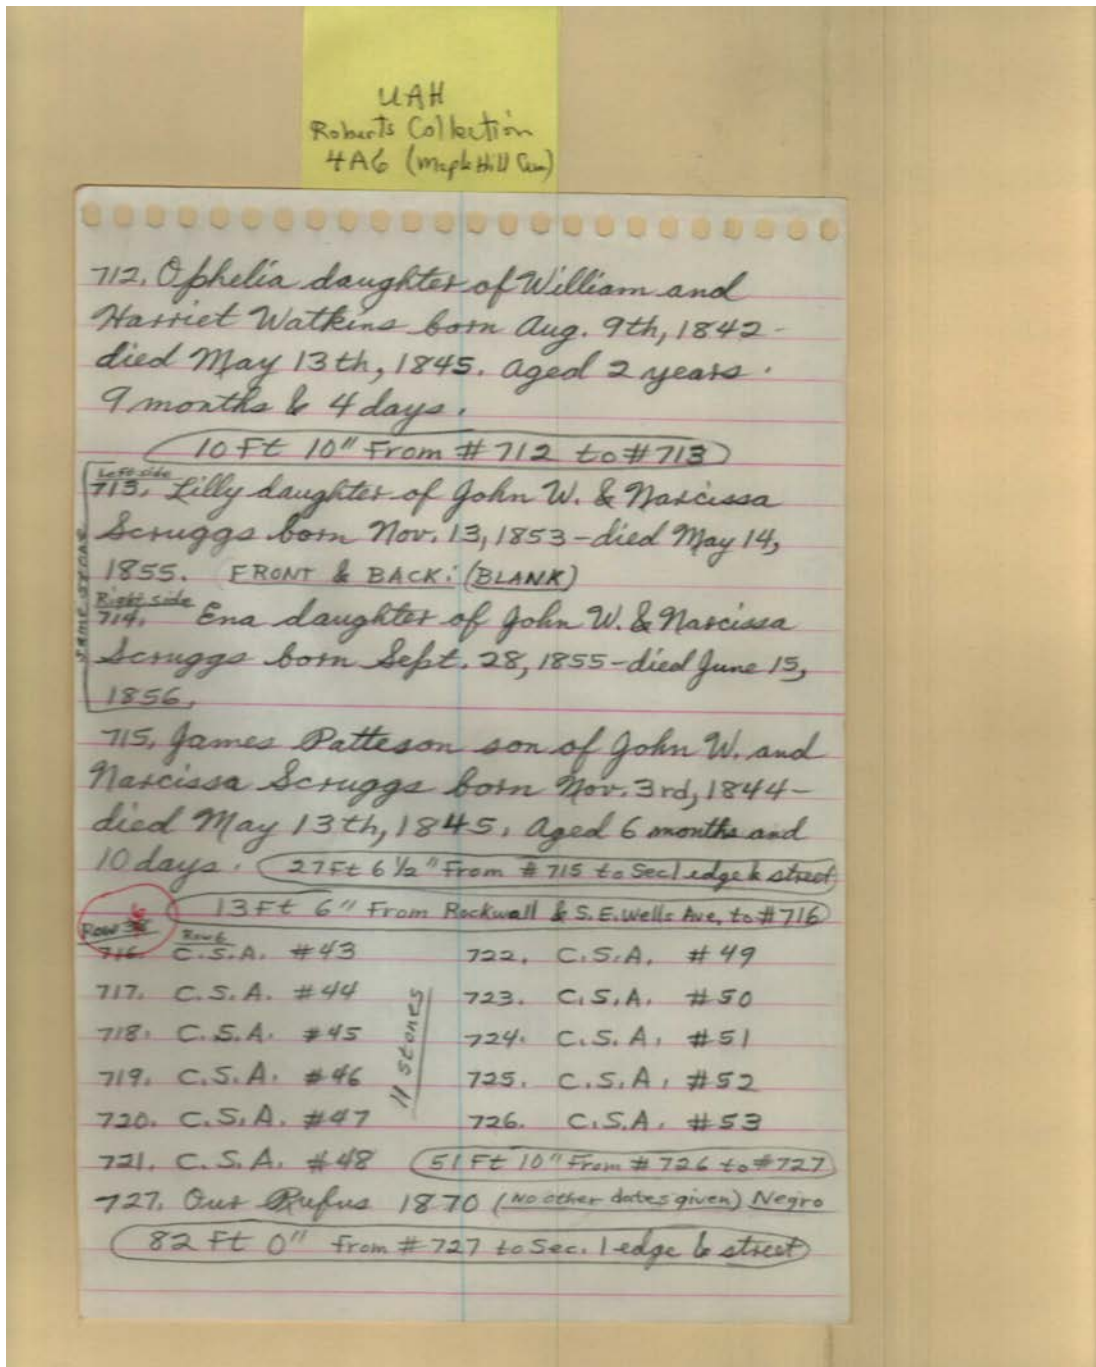 UAH
Roberts Collection
4A6 (Maple Hill Cem)
712. Ophelia daughter of William and
Harriet Watkins born Aug. 9th, 1842-
died May 13th, 1845. Aged 2 years.
9 months & 4 days.
10 Ft 10" From #712 to #713
Left side
713. Lilly daughter of John W. & Narcissa
Scruggs born Nov. 13, 1853-died May 14,
1855. FRONT & BACK: (BLANK)
SAME STONE
Right side
714. Ena daughter of John W. & Narcissa
Scruggs born Sept. 28, 1855-died June 15,
1856.
715. James Patteson son of John W. and
Narcissa Scruggs born Nov. 3rd, 1844-
died May 13th, 1845. Aged 6 months and
10 days. 27 Ft 6 1/2" From #715 to Sec 1 edge & street
13 Ft 6" From Rockwall & S.E. Wells Ave. to #716
Row 36
Row 6
716. C.S.A. #43 722. C.S.A. #49
717. C.S.A. #44 723. C.S.A. #50
718. C.S.A. #45 724. C.S.A. #51
719. C.S.A. #46 725. C.S.A. #52
720. C.S.A. #47 726. C.S.A. #53
11 stones
721. C.S.A. #48 51 Ft 10" From #726 to #727
727. Our Rufus 1870 (No other dates given) Negro
82 Ft 0" From #727 to Sec. 1 edge & street